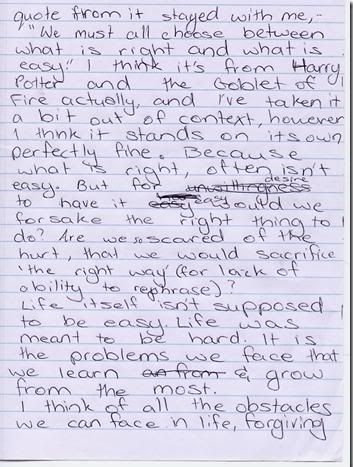 quote from it stayed with me,-
"We must all choose between
what is right and what is
easy." I think it's from Harry
Potter and the Goblet of
Fire actually, and I've taken it
a bit out of context, however
I think it stands on its own
perfectly fine. Because
what is right, often isn't
easy. But for unwillingness desire
to have it easy easy would we
forsake the right thing to
do? Are we so scared of the
hurt, that we would sacrifice
'the right way' (for lack of
ability to rephrase)?
Life itself isn't supposed
to be easy. Life was
meant to be hard. It is
the problems we face that
we learn an from & grow
from the most.
I think of all the obstacles
we can face in life, forgiving